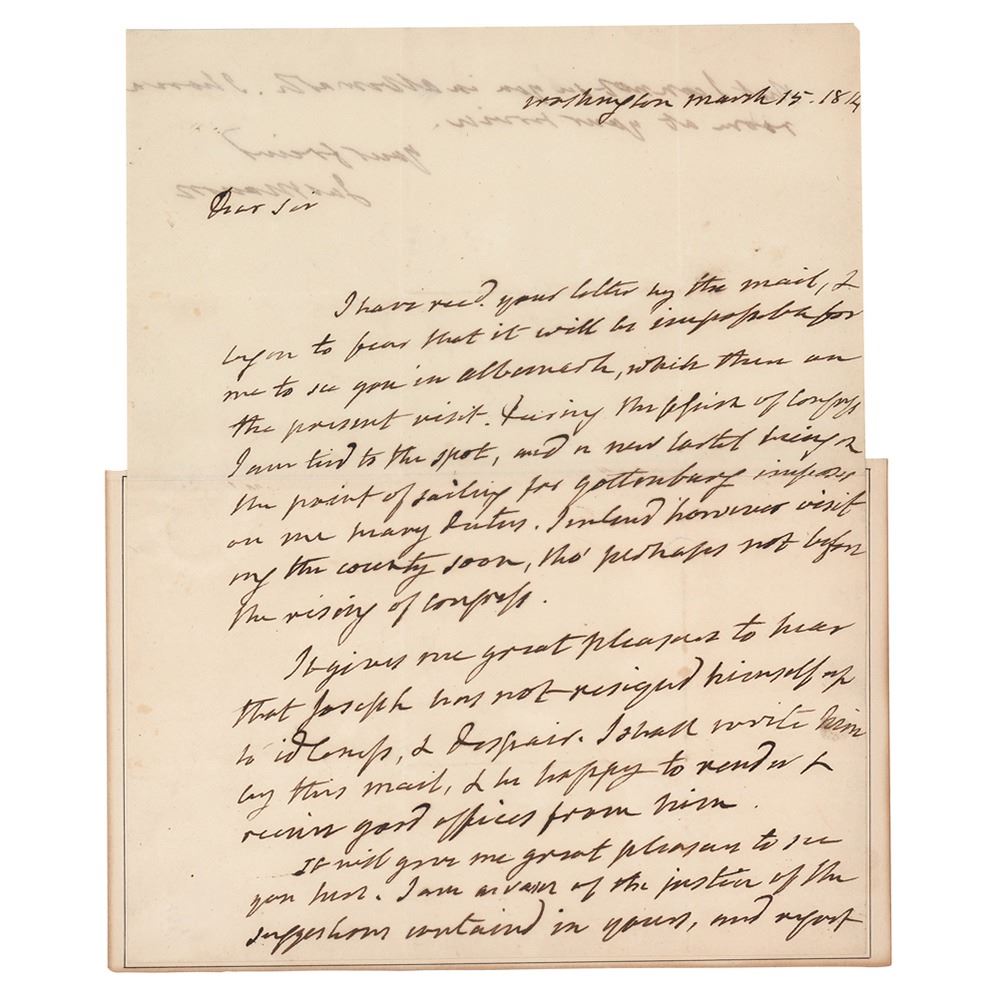 Washington March 15. 1814
Dear Sir
I have recd. your letter by the mail, &
begin to fear that it will be impossible for
me to see you in albemarle, while there on
the present visit. During the session of Congress
I am tied to the spot, and a new cartel being on
the point of sailing for Gottenburg imposes
on me many duties. I intend however visit
ing the county soon, tho' perhaps not before
the rising of Congress.
It gives me great pleasure to hear
that Joseph has not resigned himself up
to idleness, & despair. I shall write him
by this mail, & be happy to render &
receive good offices from him.
It will give me great pleasure to see
you here. I am aware of the justice of the
suggestions contained in yours, and
your friend
Jas Monroe